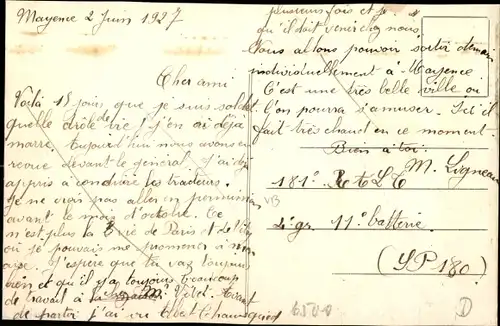 Mayence 2 Juin 1927
Cher ami
Voilà 15 jours que je suis soldat
quelle drôle de vie, j'en ai déjà
marre, aujourd'hui nous avons eu
revue devant le général, j'ai déjà
appris à conduire les tracteurs.
Je ne crois pas aller en permission
avant le mois d'octobre. Ce
n'est plus la vie de Paris et de
où je pouvais me promener à mon
aise. J'espère que tu vas toujours
bien et qu'il y a toujours beaucoup
de travail à la Avant
de partir j'ai vu
plusieurs fois et je
qu'il doit venir chez nous.
Nous allons pouvoir sortir demain
individuellement à Mayence
C'est une très belle ville où
l'on pourra s'amuser. Ici il
fait très chaud en ce moment.
Bien à toi:
M. Ligneau
181° R
2 gr. 11° batterie.
(SP 180)
VB
6500
D